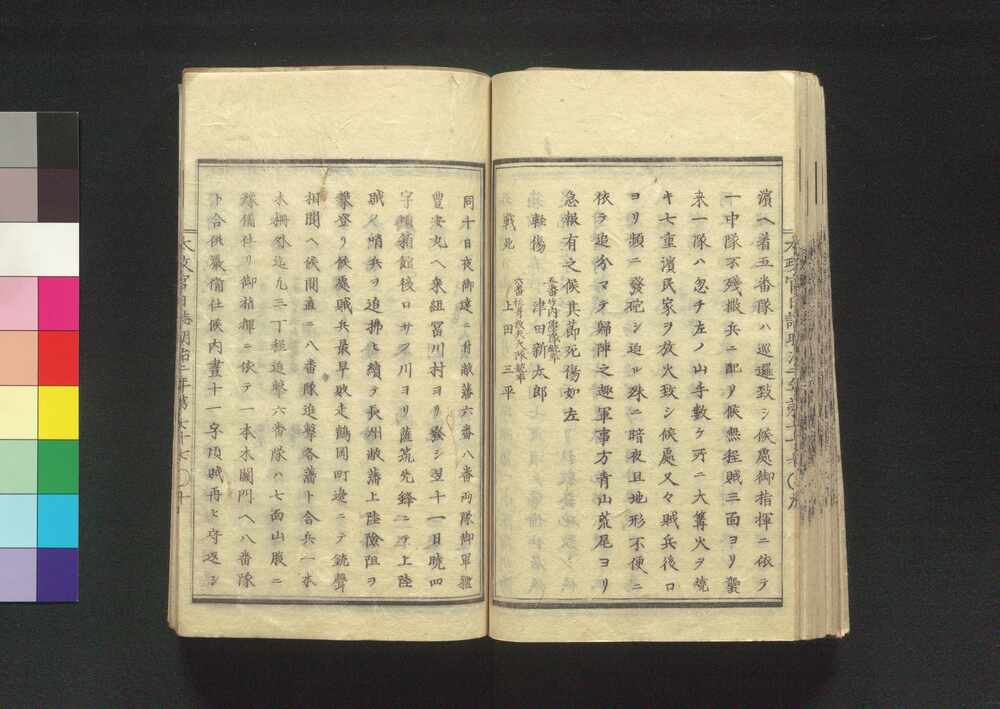 濱ヘ着五番隊ハ巡邏致シ候處御指揮ニ依テ
一中隊不殘撒兵ニ配リ候無程賊三面ヨリ襲
来一隊ハ忽チ左ノ山手數ケ所ニ大篝火ヲ焼
キ七重濱民家ヲ放火致シ候處又々賊兵後ロ
ヨリ頻ニ發砲シ迫ル殊ニ暗夜且地形不便ニ
依ヲ追分マテ歸陣之趣軍事方青山荒尾ヨリ
急報有之候其節死傷如左
五番竹内衛隊銃卒
輕傷 津田新太郎
戰死 上田三平
同十日夜御達ニ付敝藩六番八番両隊御軍艦
豊安丸ヘ乗組冨川村ヨリ發シ翌十一日曉四
字頃箱館後ロサブ川ヨリ薩荒先鋒ニテ上陸
賊ノ哨兵ヲ追拂ヒ續テ長州敝藩上陸險阻ヲ
攀登リ候處賊兵最早敗走鶴岡町邊ニテ銃聲
相聞ヘ候間直ニ八番隊進撃各藩ト合兵一本
木柵外迄九三丁程追撃六番隊ハ七面山腹ニ
隊備仕リ御指揮ニ依テ一本木關門ヘ八番隊
ト合併嚴備仕候内晝十一字頃賊再ヒ守返シ
太政官日誌明治二年第七十七 〇十